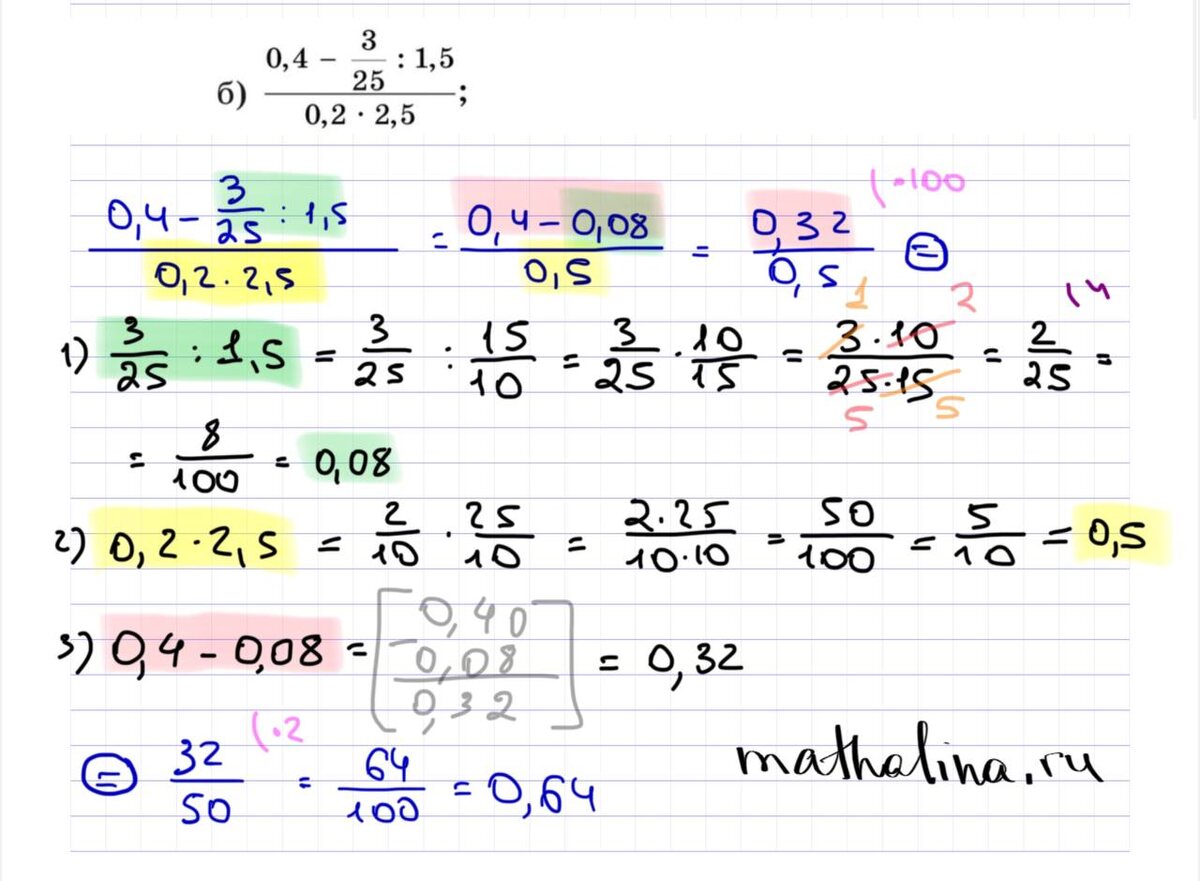 б) (0,4 − 3/25 : 1,5) / (0,2 · 2,5);
(0,4 − 3/25 : 1,5) / (0,2 · 2,5) = (0,4 − 0,08) / 0,5 = 0,32 / 0,5 (·100 =
1) 3/25 : 1,5 = 3/25 : 15/10 = 3/25 · 10/15 = (3 · 10) / (25 · 15) 1 2 5 5 = 2/25 (4 =
= 8/100 = 0,08
2) 0,2 · 2,5 = 2/10 · 25/10 = (2 · 25) / (10 · 10) = 50/100 = 5/10 = 0,5
3) 0,4 − 0,08 = [0,40 − 0,08 0,32] = 0,32
= 32/50 (·2 = 64/100 = 0,64
mathalina.ru